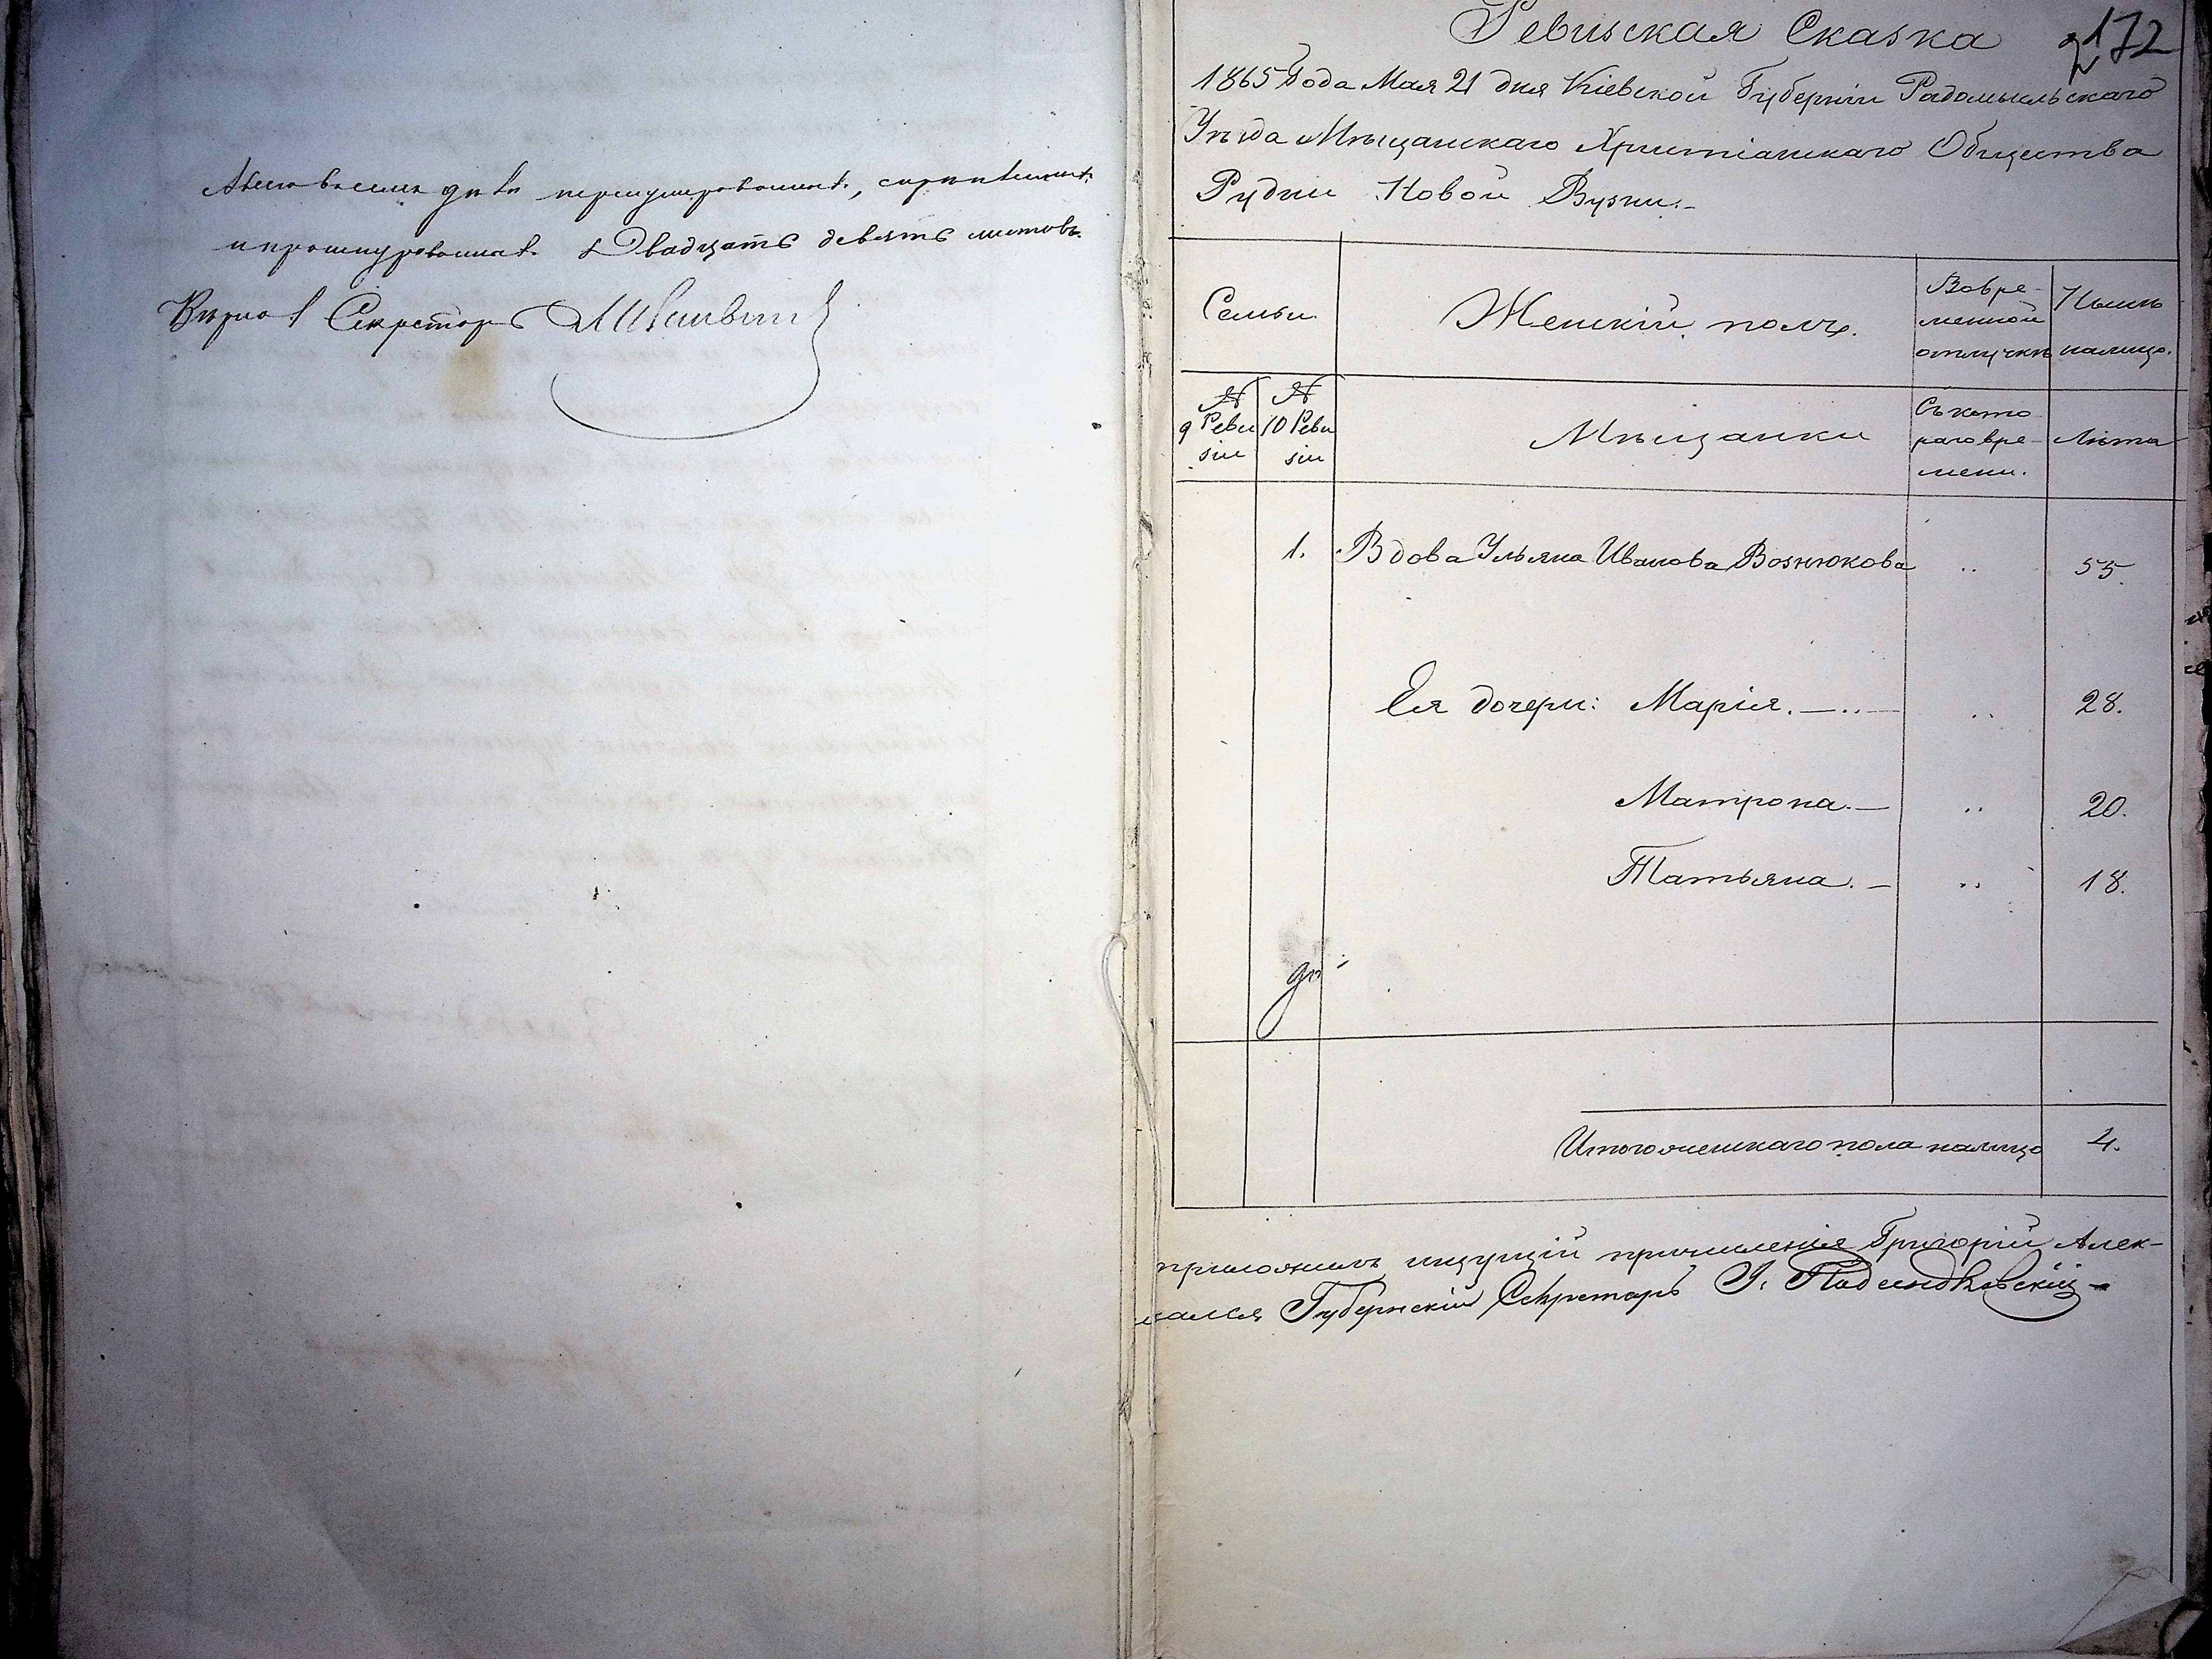 А всего въ семъ дѣлѣ перенумерованныхъ,
и прошнурованныхъ Двадцать девять листовъ.
Вѣрно Секретарь
Ревизская Сказка 172
1865 Года Мая 21 дня Кіевской Губерніи Радомысльскаго
Уѣзда Мѣщанскаго Христіанскаго Общества
Рудни Новой Бузни.-
Семьи. Женскій полъ. Вовре-менной отлучкѣ Нынѣ налицо.
№ 9 Реви зіи № 10 Реви зіи Мѣщанки Съ кото раго вре-мени. Лѣта
1. Вдова Ульяна Иванова Вознюкова .. 55.
Ея дочери: Марія. —..— .. 28.
Матрона. — .. 20.
Татьяна. — .. 18.
Итого женскаго пола налицо 4.
приложилъ ищущій причисленія Григорій Алек-
Губернскій Секретарь